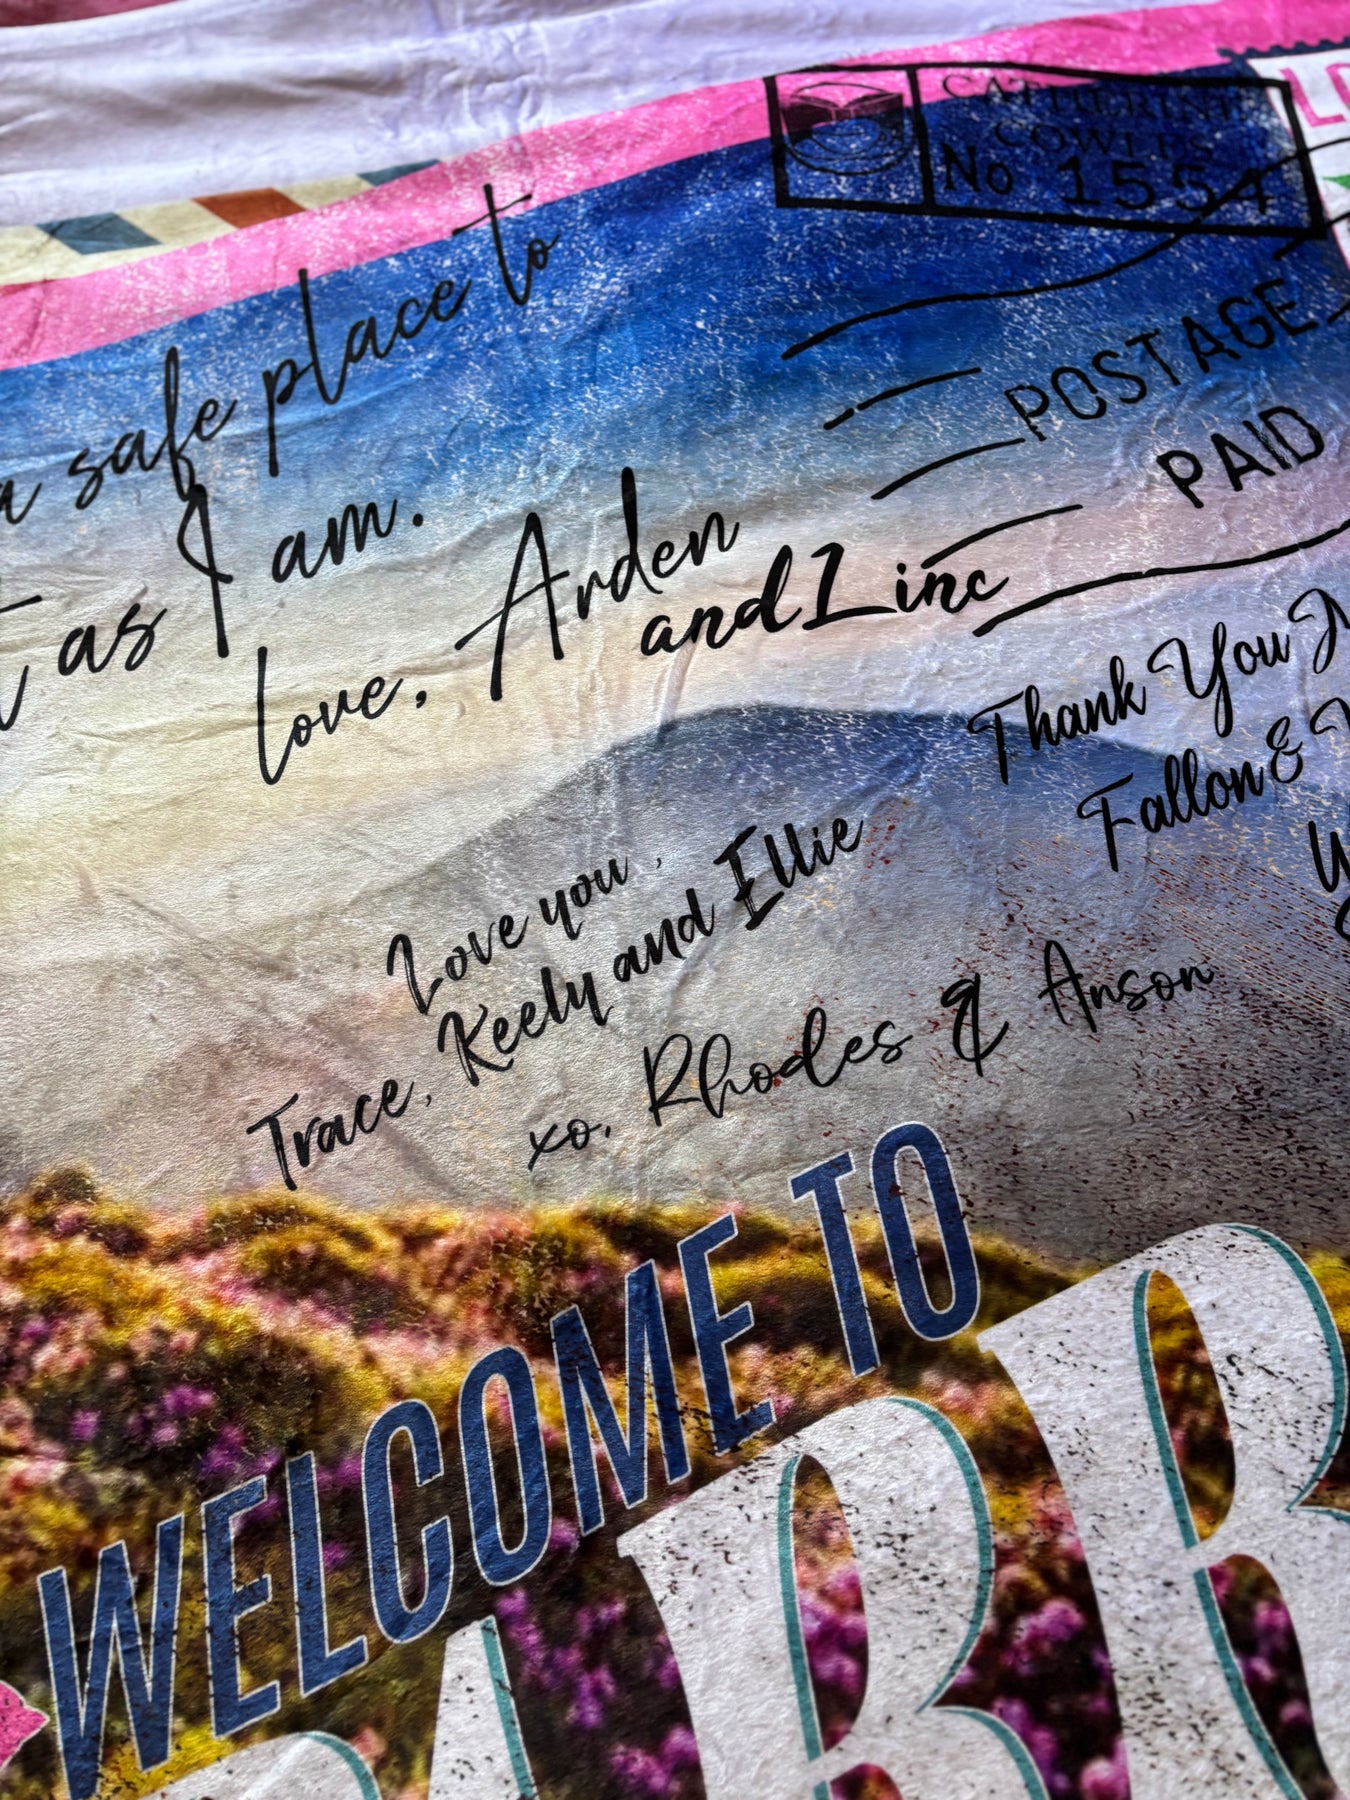 CATHERINE
COWLES
No 1554
a safe place to
as I am.
love, Arden
and Linc
POSTAGE
PAID
Thank You
Fallon &
Love you,
Trace, Keely and Ellie
xo, Rhodes & Anson
WELCOME TO